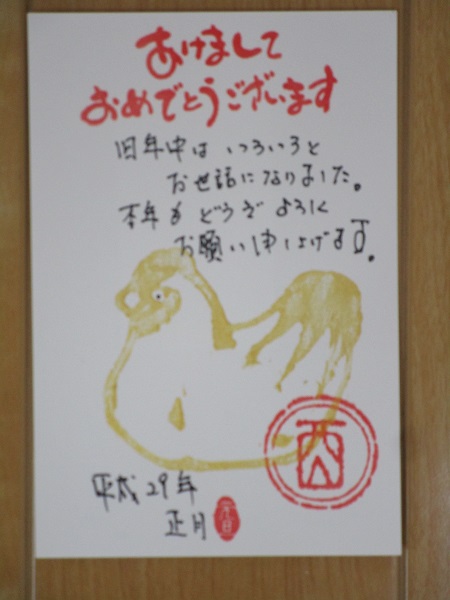 あけまして
おめでとうございます
旧年中はいろいろと
お世話になりました。
本年もどうぞよろしく
お願い申し上げます。
酉
平成29年
正月
元旦